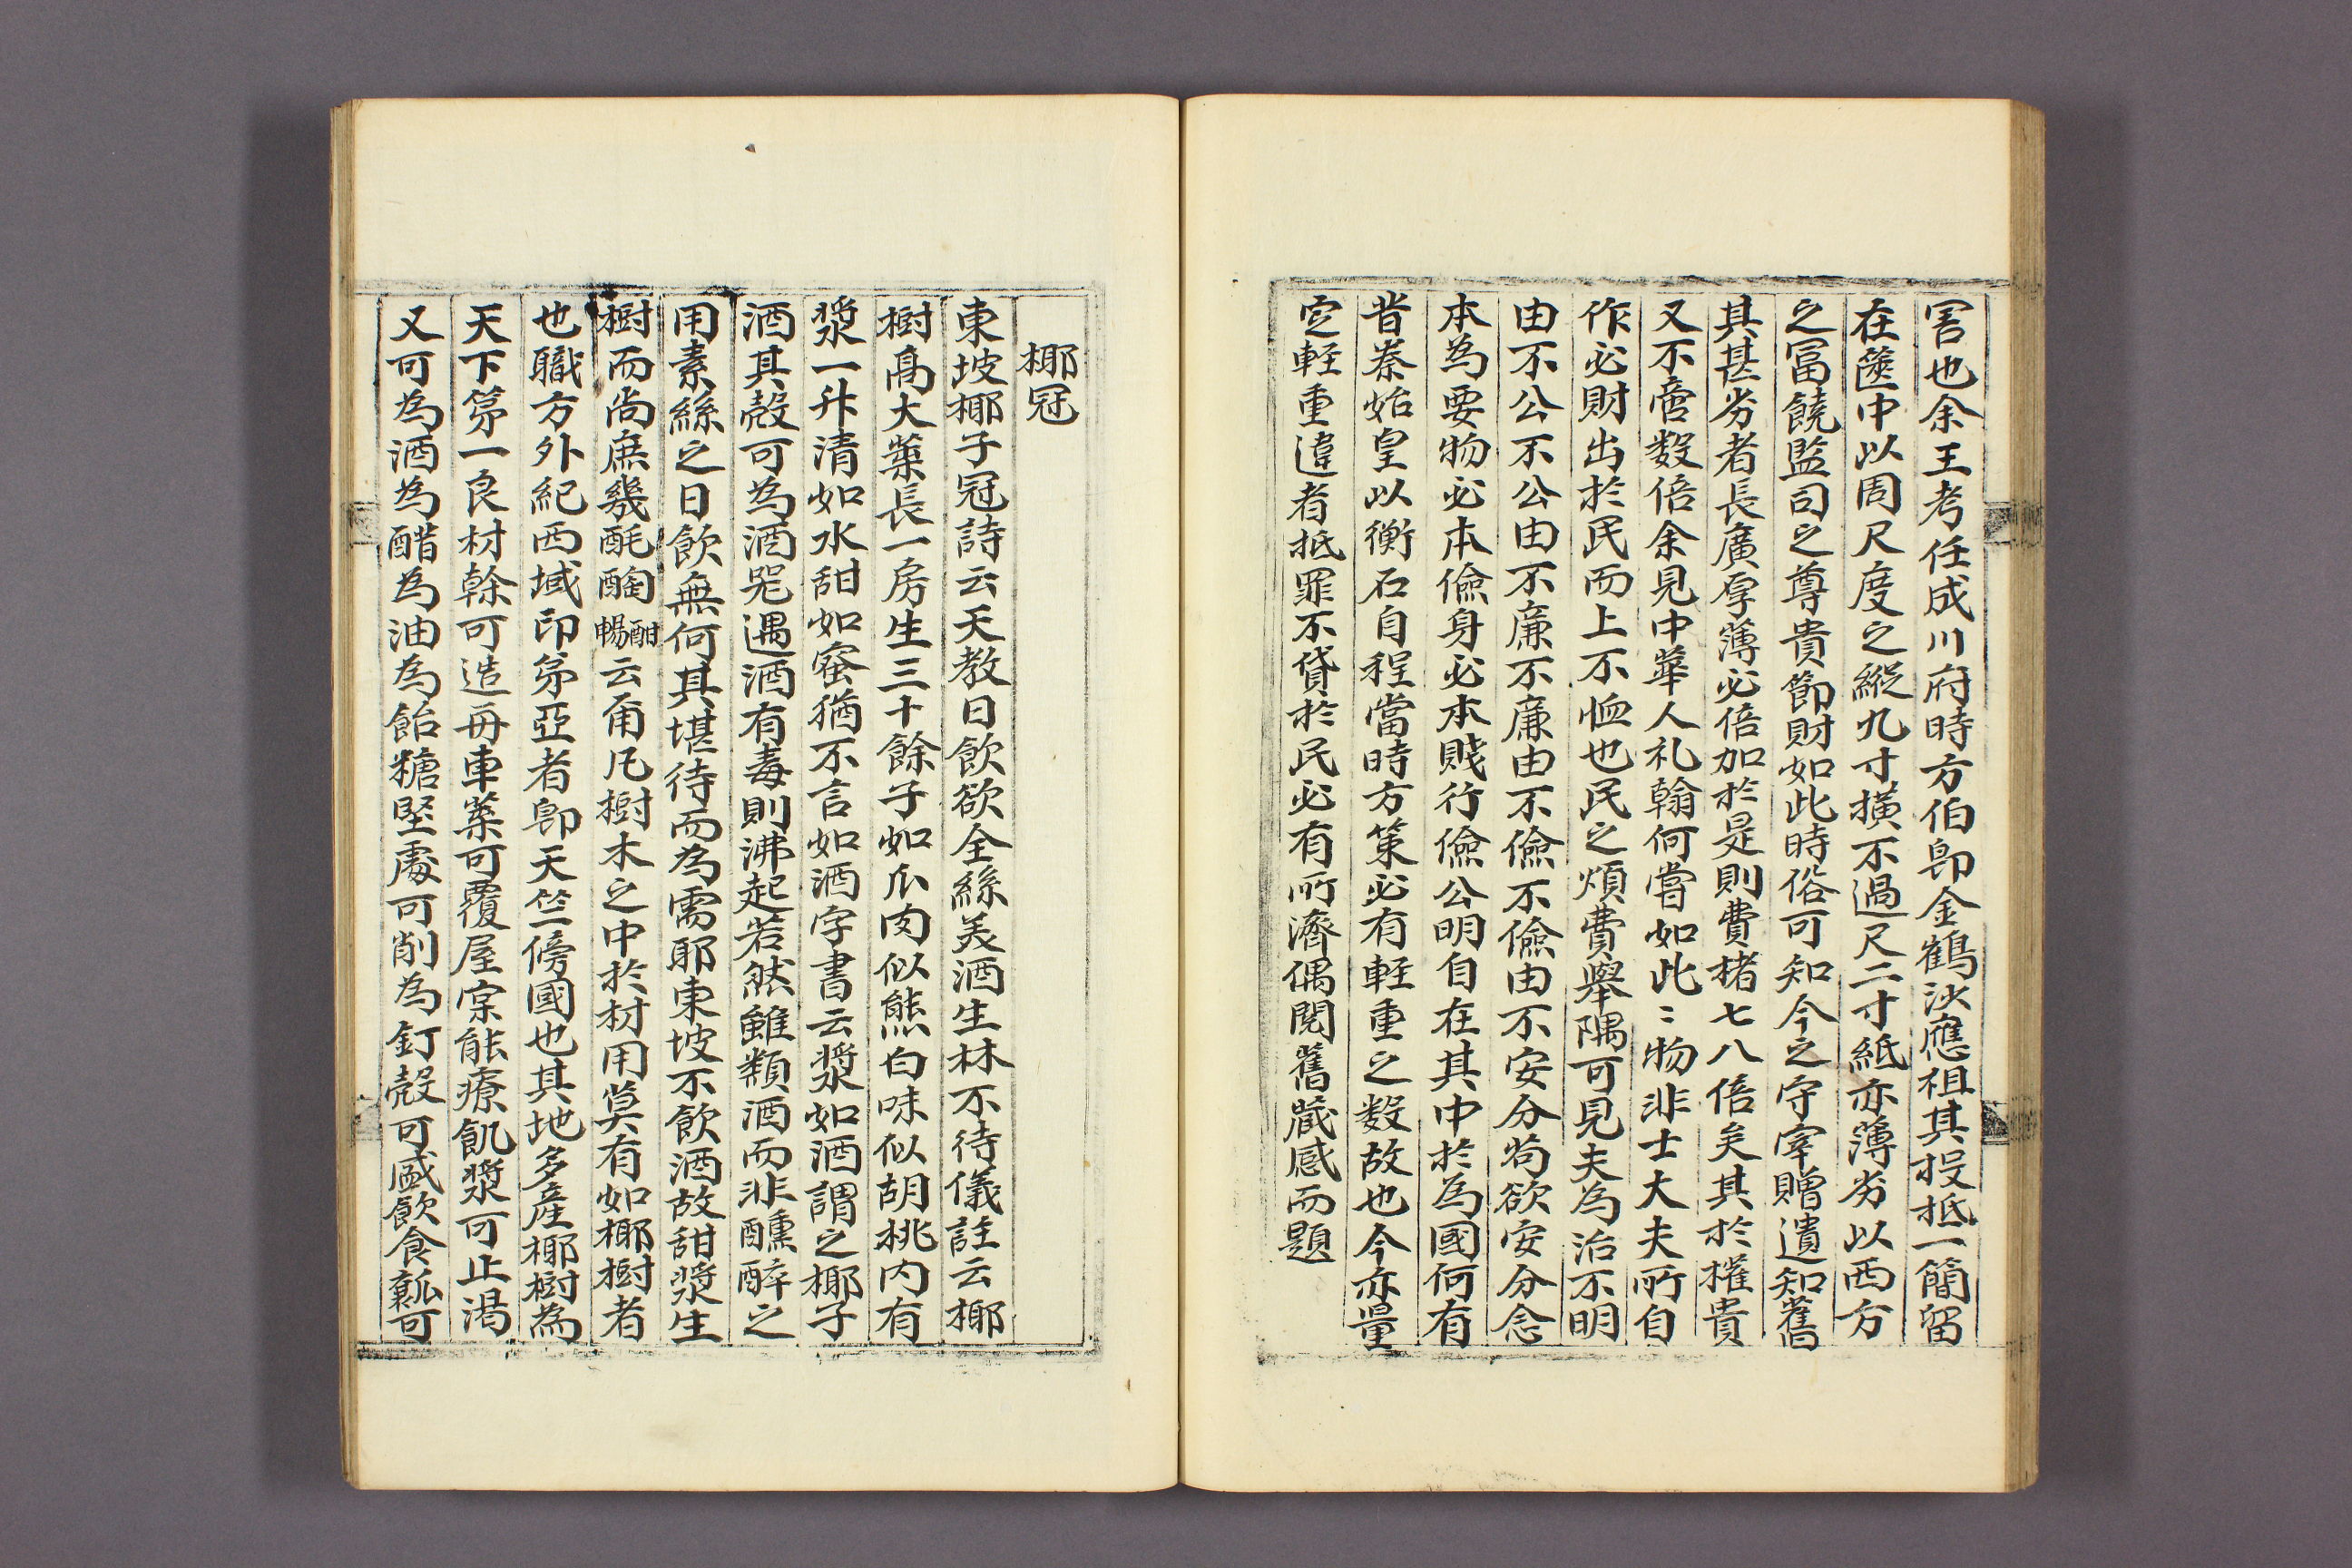 害也余王考任成川府時方伯即金鶴沙應祖其投抵一簡留
在篋中以周尺度之縱九寸橫不過尺二寸紙亦薄劣以西方
之冨饒監司之尊貴節財如此時俗可知今之守宰贈遺知舊
其甚劣者長廣厚薄必倍加於是則費楮七八倍矣其於權貴
又不啻数倍余見中華人礼翰何嘗如此〻物非士大夫所自
作必財出於民而上不恤也民之煩費擧隅可見夫為治不明
由不公不公由不廉不廉由不儉不儉由不安分苟欲安分念
本為要物必本儉身必本賤行儉公明自在其中於為國何有
昔秦始皇以衡石自程當時方策必有軽重之数故也今亦量
定軽重違者抵罪不貸於民必有所濟偶閱舊蔵感而題
椰冠
東坡椰子冠詩云天教日飲欲全絲美酒生林不待儀註云椰
樹高大葉長一房生三十餘子如瓜肉似熊白味似胡桃内有
漿一升清如水甜如蜜猶不言如酒字書云漿如酒謂之椰子
酒其殼可為酒器遇酒有毒則沸起若然雖類酒而非醺醉之
用素絲之日飲無何其堪待而為需耶東坡不飲酒故甜漿生
樹而尚庶幾酕醄酣暢云甭凡樹木之中於材用莫有如椰樹者
也職方外紀西域印第亞者即天竺傍國也其地多産椰樹為
天下第一良材幹可造舟車葉可覆屋宲能療飢漿可止渴
又可為酒為醋為油為飴糖堅處可削為釘殼可盛飲食瓤可